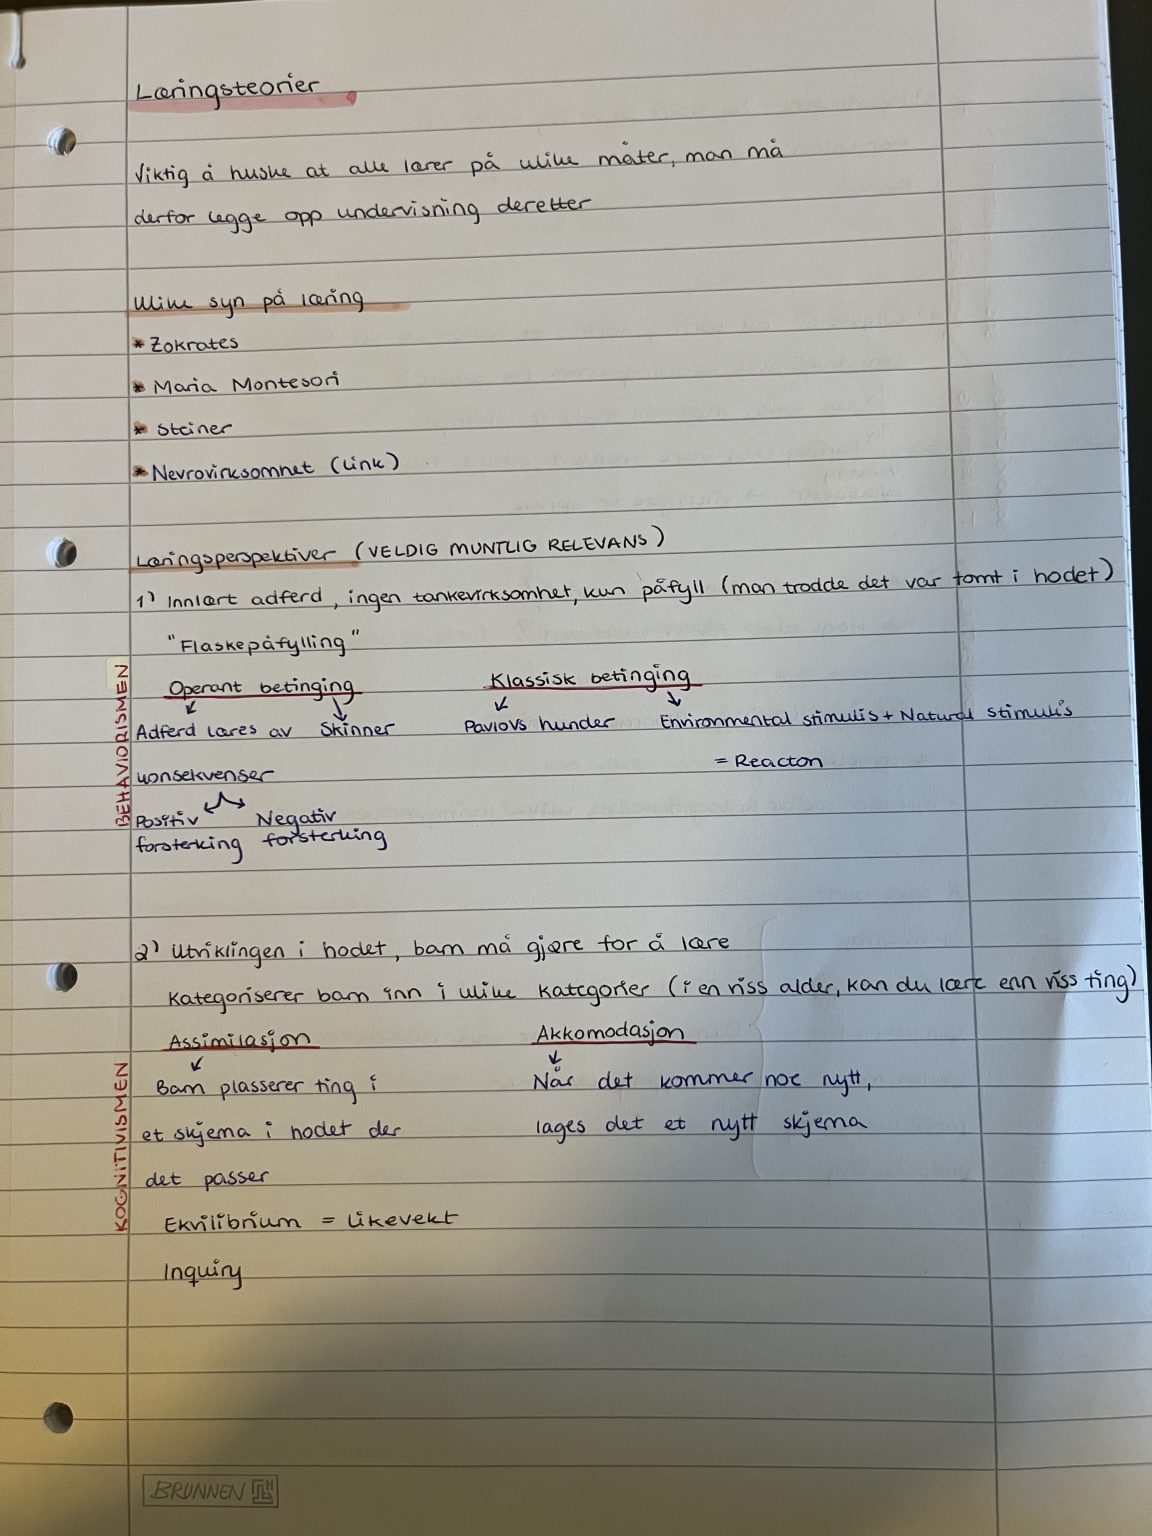 Læringsteorier
Viktig å huske at alle lærer på ulike måter, man må
derfor legge opp undervisning deretter
Ulike syn på læring
* Zokrates
* Maria Montesori
* Steiner
* Nevrovirksomhet (Link)
Læringsperspektiver (VELDIG MUNTLIG RELEVANS)
1) Innlært adferd, ingen tankevirksomhet, kun påfyll (man trodde det var tomt i hodet)
"Flaskepåfylling"
BEHAVIORISMEN
Operant betinging Klassisk betinging
Adferd læres av Skinner Pavlovs hunder Environmental stimulis + Natural stimulis
konsekvenser = Reacton
Positiv Negativ
forsterking forsterking
2) Utviklingen i hodet, barn må gjøre for å lære
Kategoriserer barn inn i ulike kategorier (i en viss alder, kan du lære enn viss ting)
KOGNITIVISMEN
Assimilasjon Akkomodasjon
Barn plasserer ting i Når det kommer noe nytt,
et skjema i hodet der lages det et nytt skjema
det passer
Ekvilibrium = likevekt
Inquiry
BRUNNEN